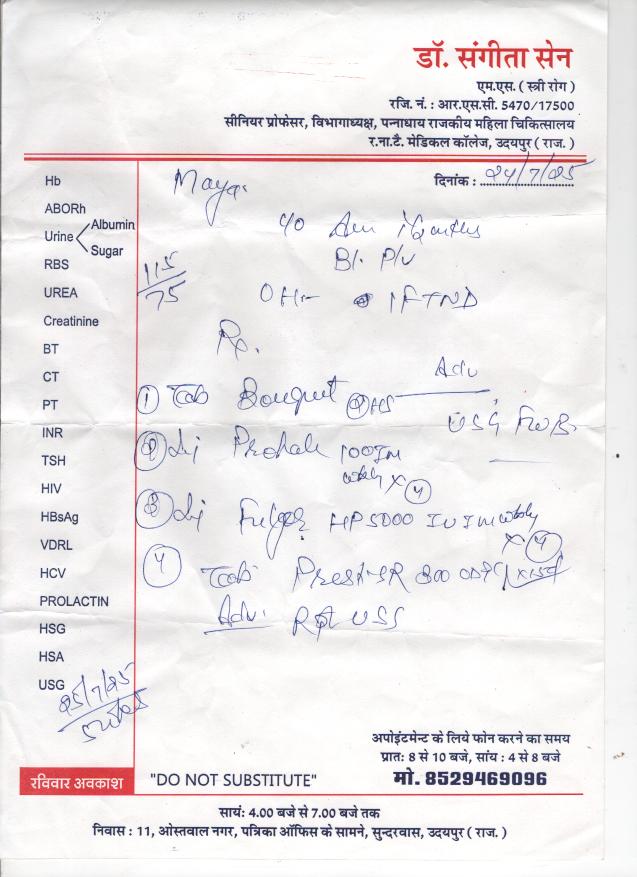 डॉ. संगीता सेन
एम.एस. ( स्त्री रोग )
रजि. नं. : आर.एस.सी. 5470/17500
सीनियर प्रोफेसर, विभागाध्यक्ष, पन्नाधाय राजकीय महिला चिकित्सालय
र.ना.टै. मेडिकल कॉलेज, उदयपुर ( राज. )
दिनांक : 24/7/25
Maya
Hb
ABORh
Urine Albumin
Sugar
RBS
UREA
Creatinine
BT
CT
PT
INR
TSH
HIV
HBsAg
VDRL
HCV
PROLACTIN
HSG
HSA
USG
115/75
c/o Am months
B/. P/v
OH- IFTND
Rx.
① Tab HS
② Inj 100 IM
weekly x ④
③ Inj HP 5000 IU IM weekly
x ④
④ Tab SR 300 OD
Adv. Rpt USG
Adv
USG FWB.
25/7/25
रविवार अवकाश
"DO NOT SUBSTITUTE"
अपोइंटमेन्ट के लिये फोन करने का समय
प्रात: 8 से 10 बजे, सांय : 4 से 8 बजे
मो. 8529469096
सायं: 4.00 बजे से 7.00 बजे तक
निवास : 11, ओस्तवाल नगर, पत्रिका ऑफिस के सामने, सुन्दरवास, उदयपुर ( राज. )